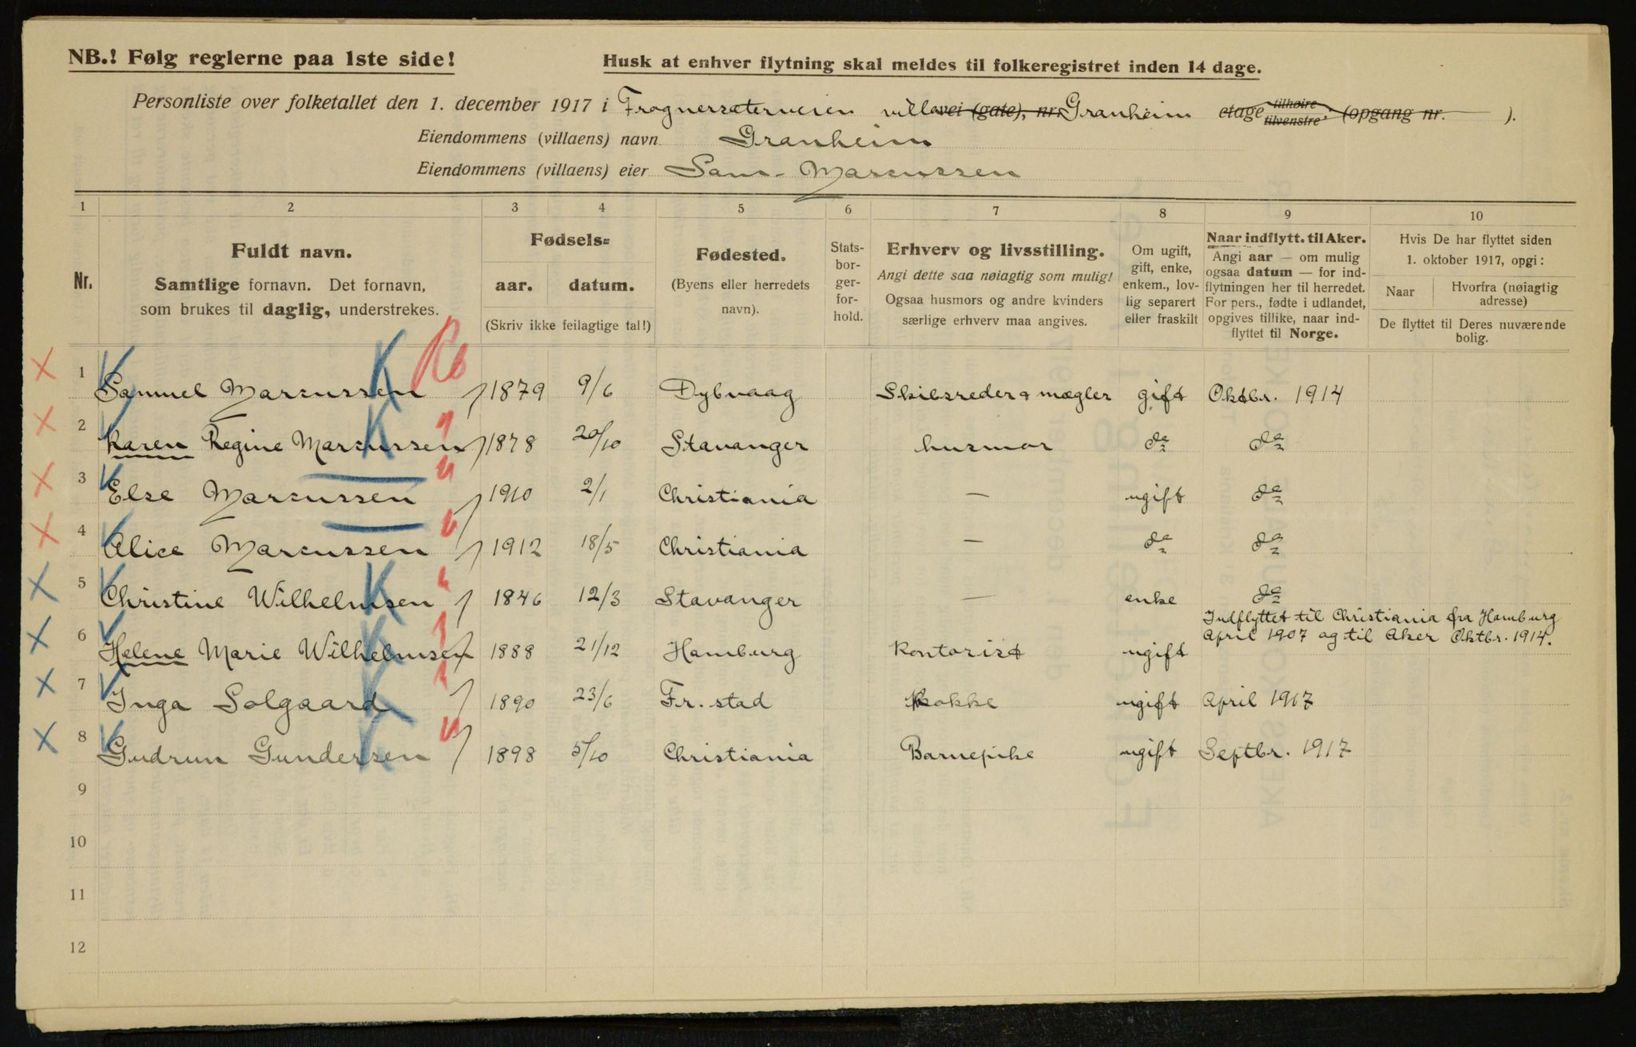 NB.! Følg reglerne paa 1ste side!
Husk at enhver flytning skal meldes til folkeregistret inden 14 dage.
Personliste over folketallet den 1. december 1917 i Frognersæterveien villa vei (gate), nr. Granheim etage tilhøire tilvenstre. (opgang nr. ).
Eiendommens (villaens) navn Granheim
Eiendommens (villaens) eier Sam. Marcussen
1 2 3 4 5 6 7 8 9 10
Nr.
Fuldt navn.
Samtlige fornavn. Det fornavn,
som brukes til daglig, understrekes.
Fødsels=
aar. datum.
(Skriv ikke feilagtige tal!)
Fødested.
(Byens eller herredets
navn).
Stats-
bor-
ger-
for-
hold.
Erhverv og livsstilling.
Angi dette saa nøiagtig som mulig!
Ogsaa husmors og andre kvinders
særlige erhverv maa angives.
Om ugift,
gift, enke,
enkem., lov-
lig separert
eller fraskilt
Naar indflytt. til Aker.
Angi aar — om mulig
ogsaa datum — for ind-
flytningen her til herredet.
For pers., fødte i utlandet,
opgives tillike, naar ind-
flyttet til Norge.
Hvis De har flyttet siden
1. oktober 1917, opgi:
Naar Hvorfra (nøiagtig
adresse)
De flyttet til Deres nuværende
bolig.
1 Samuel Marcussen 1879 9/6 Dybvaag Skibsreder & mægler gift Oktbr. 1914
2 Karen Regine Marcussen 1878 20/10 Stavanger husmor do do
3 Else Marcussen 1910 2/1 Christiania — ugift do
4 Alice Marcussen 1912 18/5 Christiania — do do
5 Christine Wilhelmsen 1846 12/3 Stavanger — enke do
Indflyttet til Christiania fra Hamburg
April 1907 og til Aker Oktbr. 1914.
6 Helene Marie Wilhelmsen 1888 21/12 Hamburg Kontorist ugift
7 Inga Solgaard 1890 23/6 Fr. stad Kokke ugift April 1917
8 Gudrun Gundersen 1898 5/10 Christiania Barnepike ugift Septbr. 1917
9
10
11
12